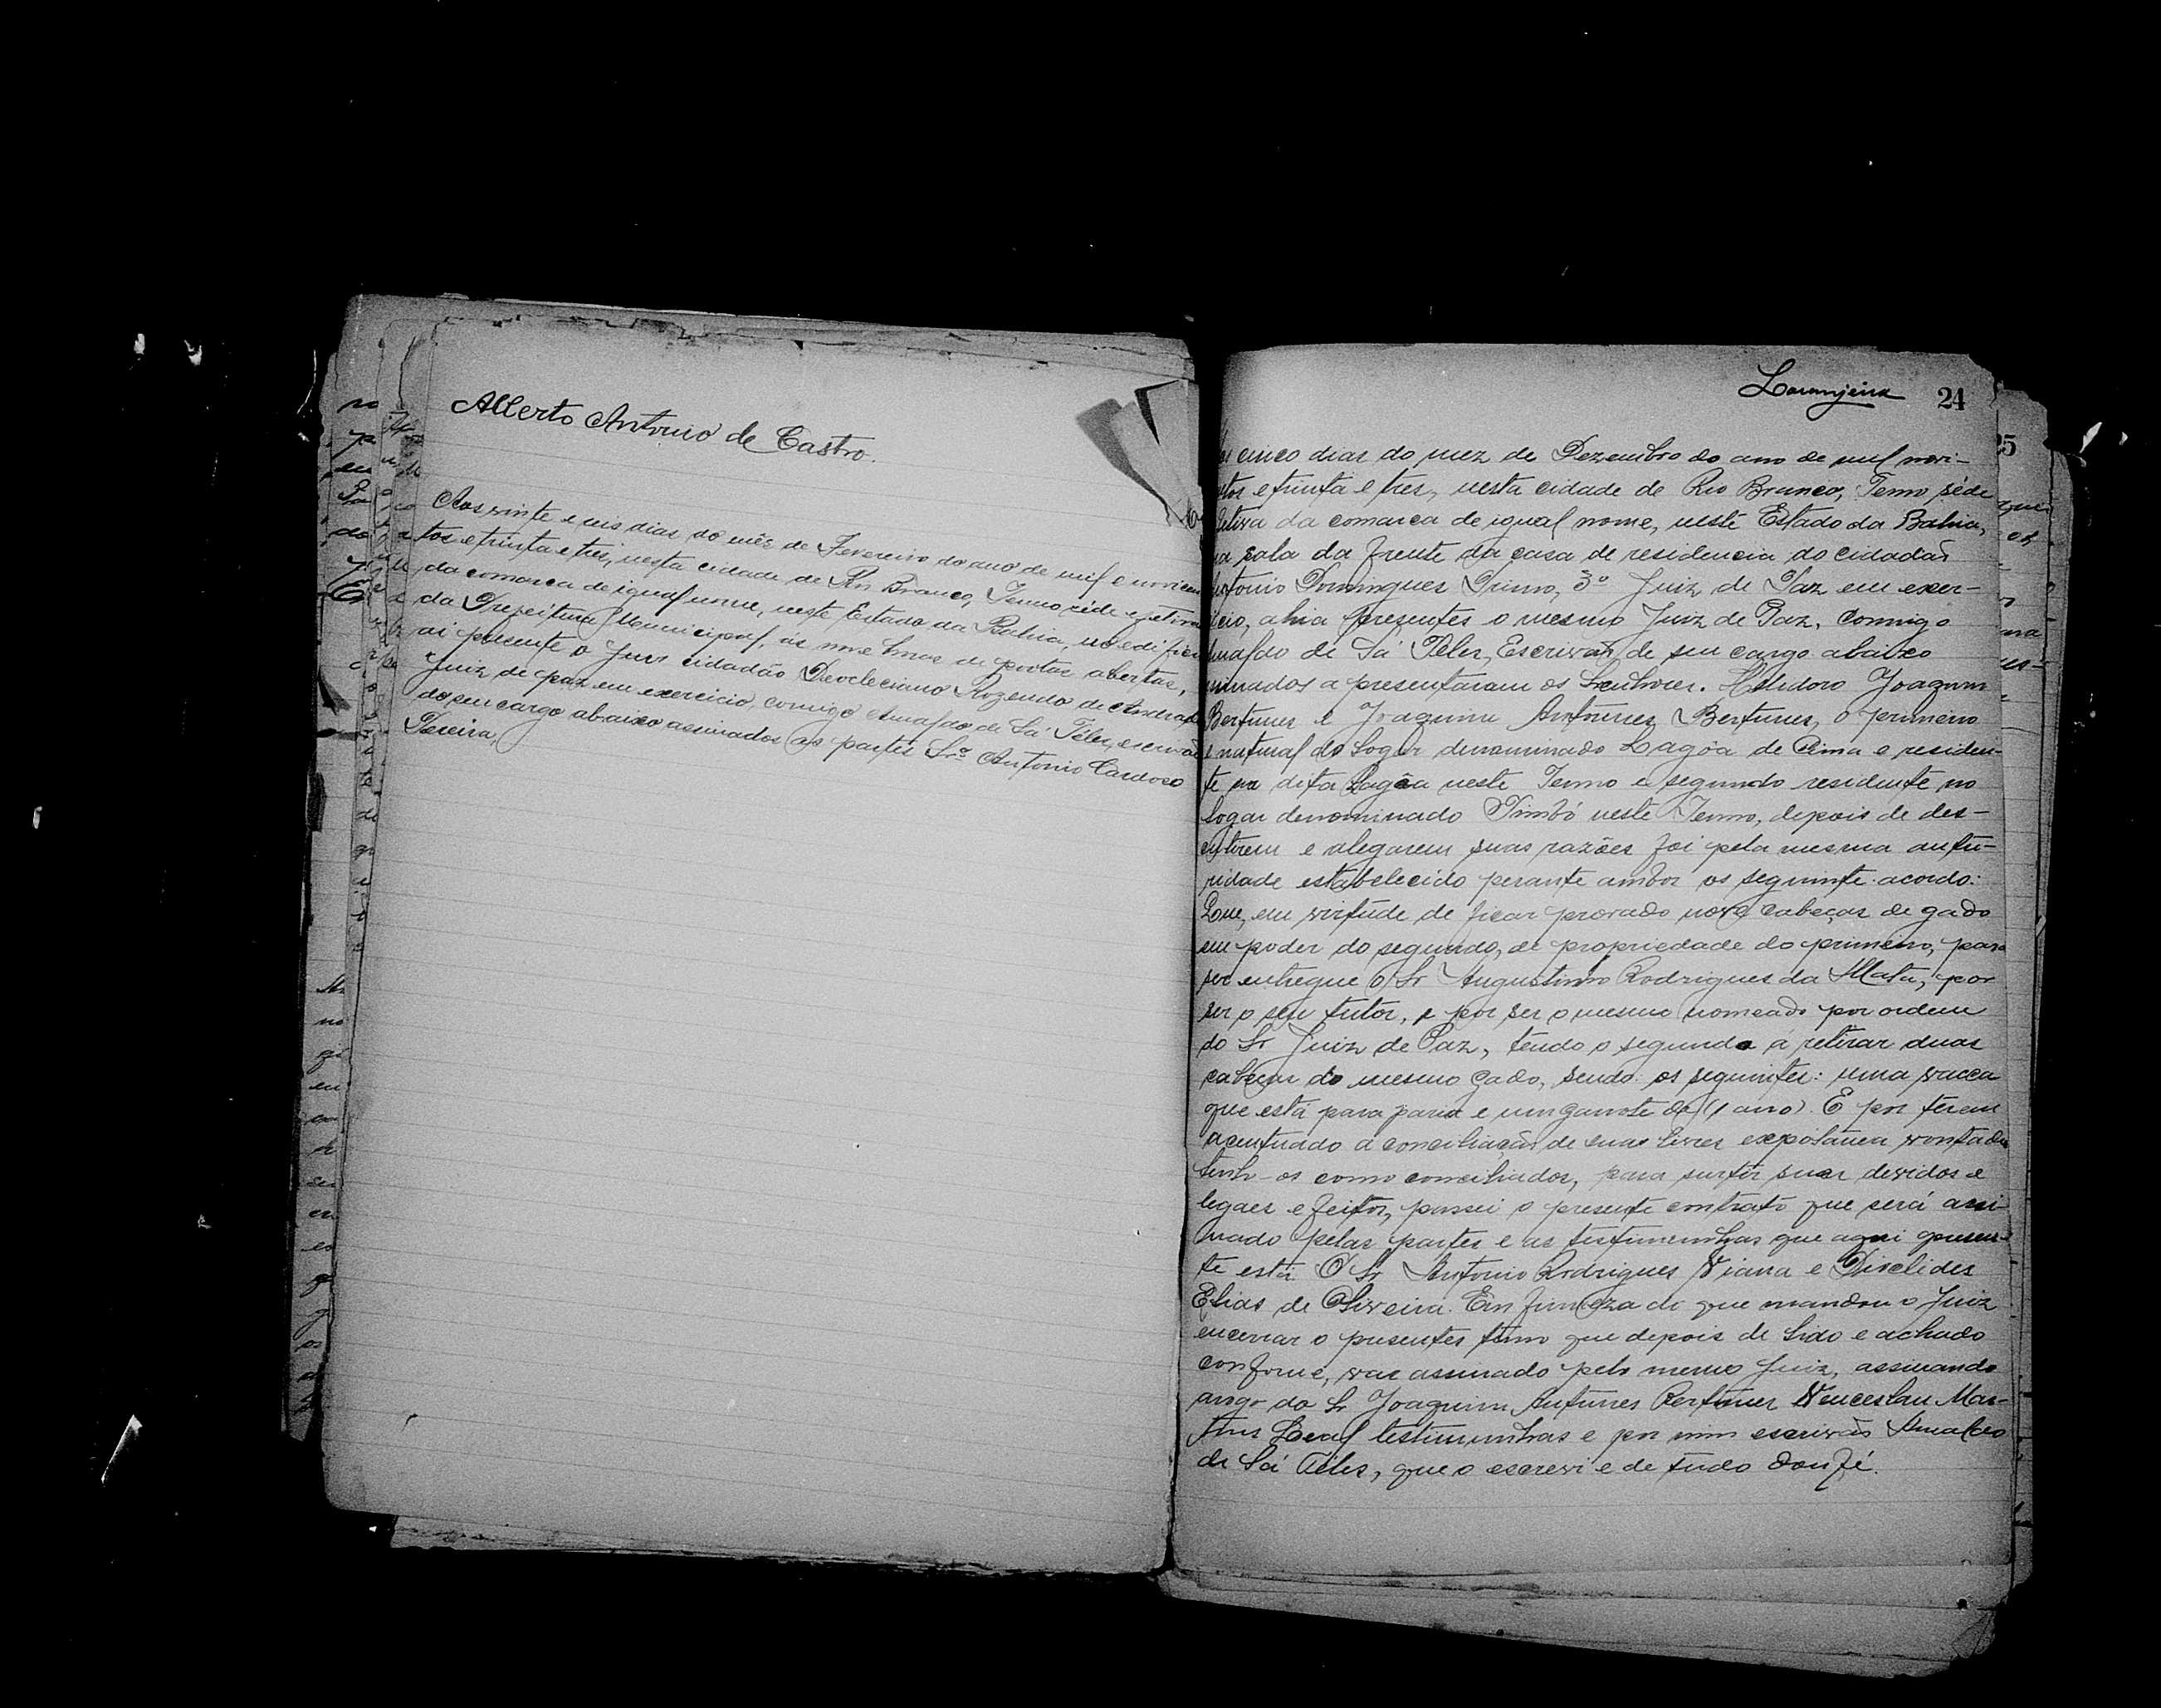 Alberto Antonio de Castro.
Aos vinte e seis dias do mês de Fevereiro do ano de mil e novicen
tos e trinta e tres, nesta cidade de Rio Branco, Termo séde efetiva
da comarca de igual nome, neste Estado da Bahia, no edificio
da Prefeitura Municipal, ás nove horas de portas abertas,
ai presente o Juis cidadão Deocleciano Rozendo de Andrade
Juiz de paz em exercicio, comigo Amaldo de Sá Téles, escrivão
do seu cargo abaixo assinados as partes Sr.º Antonio Cardoso
Pereira,
Laranjeira 24
os cinco dias do mez de Dezembro do ano de mil novi-
ntos e trinta e tres, nesta cidade de Rio Branco, Termo séde
fetiva da comarca de igual nome, neste Estado da Bahia,
na sala da frente da casa de residencia do cidadão
Antonio Domingues Primo, 3º Juiz de Paz em exer-
icio, ahia presentes o mesmo Juiz de Paz, Comigo
maldo de Sá Téles, Escrivão de seu cargo abaixo
ssinados a presentaram os Senhores. Izidoro Joaquim
Bertunes e Joaquim Antunes Bertunes, o primeiro
é natural do logar denominado Lagôa de Cima e residen-
te na dita Lagôa neste Termo e segundo residente no
logar denominado Timbó neste Termo, depois de des-
cutirem e alegarem suas razões foi pela mesma auto-
ridade estabelecido perante ambos os seguinte acordo:
Que, em virtude de ficar provado nove cabeças de gado
em poder do segundo, de propriedade do primeiro, para
ser entregue o Sr Augustinho Rodrigues da Mata, por
ser o seu tutor, e por ser o mesmo nomeado por ordem
do Sr Juiz de Paz, tendo o segundo a retirar duas
cabeças do mesmo gado, sendo os seguintes: uma vacca
que está para parir e um garrote de (1 ano). E por terem
acentuado a conciliação de suas livres expotanea vontades
tenho-os como conciliados, para surtir suas devidos e
legaes efeitos, passei o presente contrato que será assi-
nado pelas partes e as testimunhas que aqui presen-
te está O Sr Antonio Rodrigues Viana e Dioclides
Elias de Oliveira. Em firmeza do que mandou o Juiz
encerrar o presentes termo que depois de lido e achado
conforme, vae assinado pelo mesmo Juiz, assinando
arogo do Sr Joaquim Antunes Bertunes Venceslau Mar-
tins Leal testimunhas e por mim escrivão Amaldo
de Sá Téles, que o escrevi e de tudo dou fé.